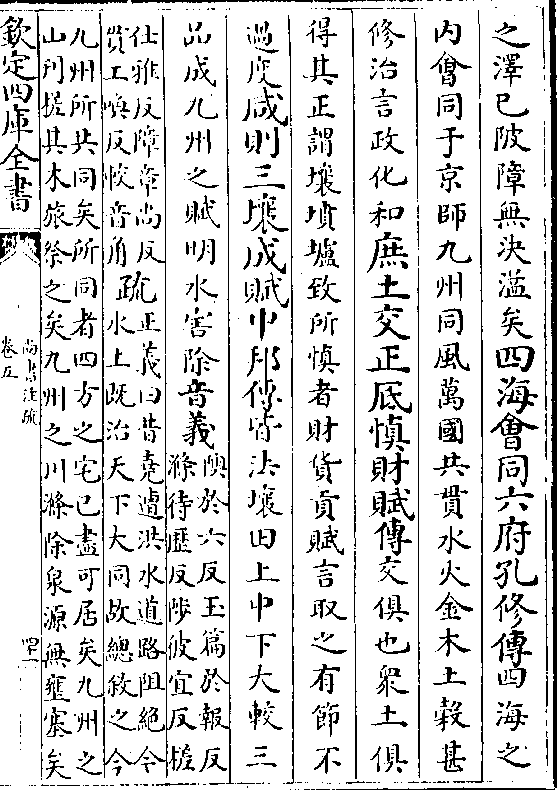 之澤已陂障無決溢矣四海會同六府孔修傳四海之
内會同于京師九州同風萬國共貫水火金木土糓甚
修治言政化和庶土交正厎慎財賦傳交俱也衆土俱
得其正謂壤墳壚致所慎者財貨貢賦言取之有節不
過度咸則三壤成賦中邦傳皆法壤田上中下大較三
品成九州之賦明水害除音義
隩於六反玉篇於報反
滌待歴反陂彼宜反槎
仕雅反障章尚反
貫工喚反較音角
疏
正義曰昔堯遭洪水道路阻絶今
水土既治天下大同故總敘之今
九州所共同矣所同者四方之宅已盡可居矣九州之
山刋槎其木旅祭之矣九州之川滌除泉源無壅塞矣
欽定四庫全書
尚書注疏
卷五
四十一